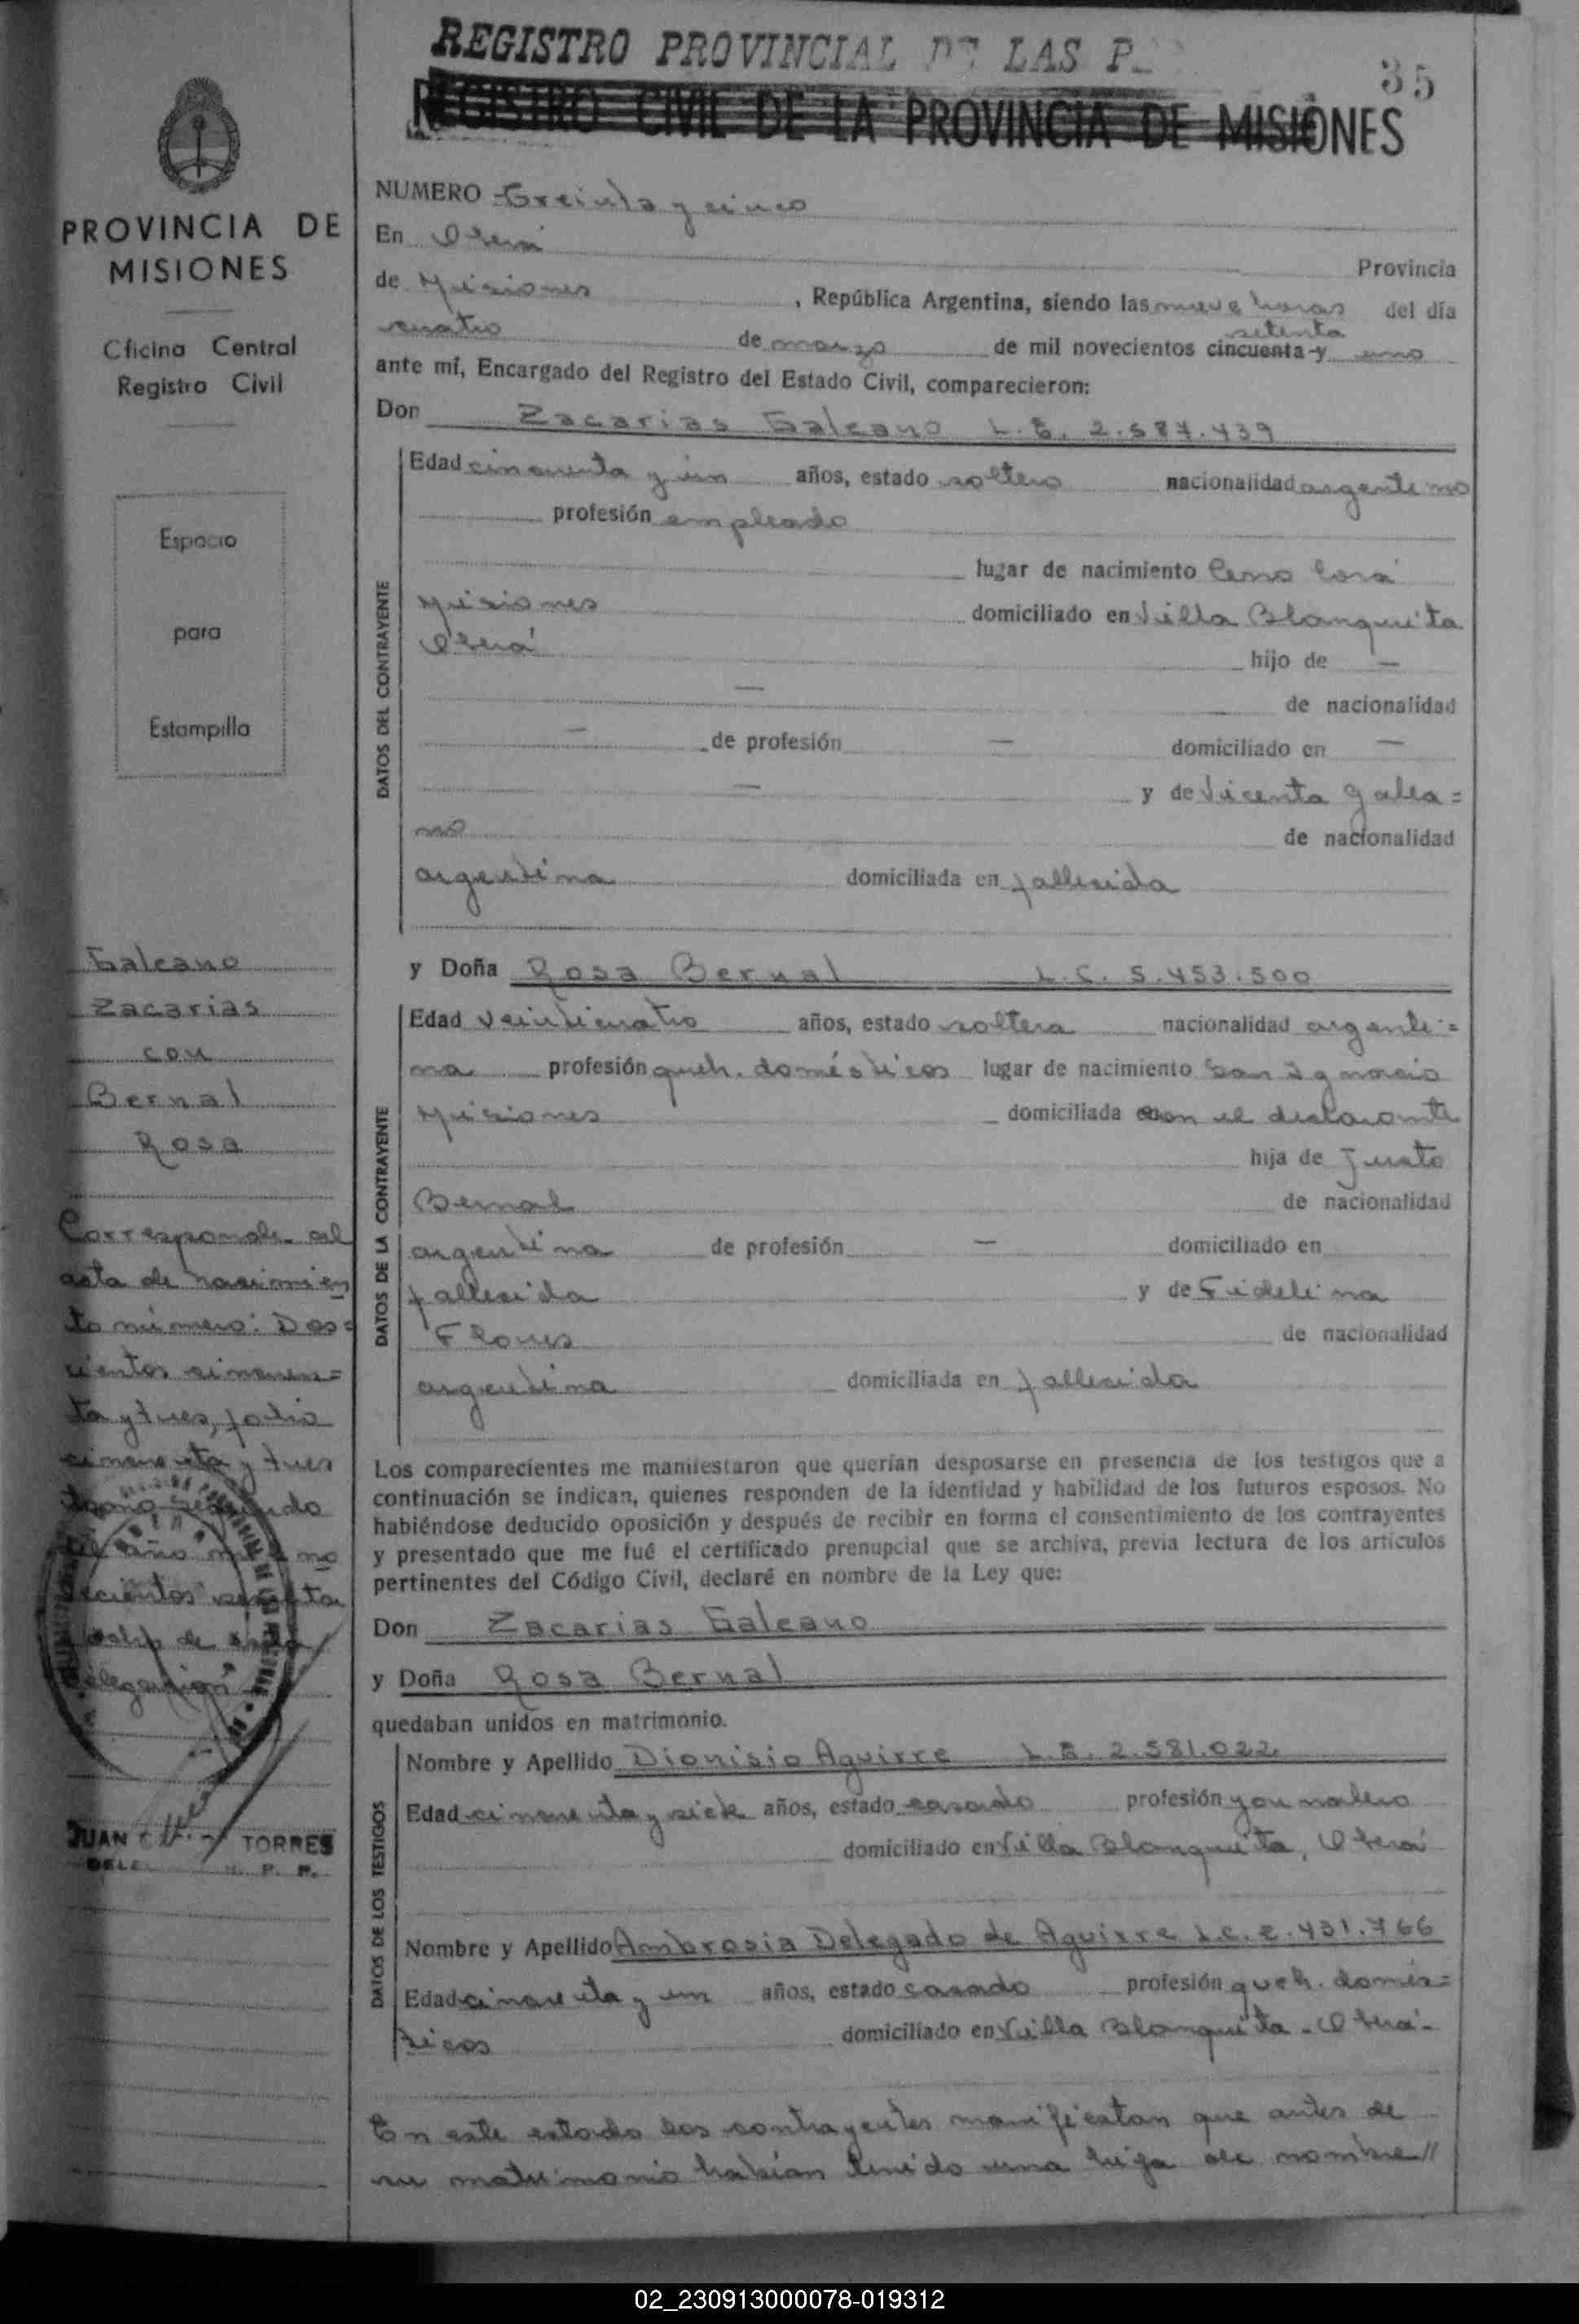 REGISTRO PROVINCIAL DE LAS P
35
REGISTRO CIVIL DE LA PROVINCIA DE MISIONES
PROVINCIA DE
MISIONES
Oficina Central
Registro Civil
Espacio
para
Estampilla
Galeano
Zacarias
con
Bernal
Rosa
Corresponde al
acta de nacimien
to número: Dos=
cientos cincuen=
ta y tres, folio
cincuenta y tres
tomo segundo
del año mil no
vecientos
de esta
delegación
JUAN TORRES
DELE P. P.
NUMERO Treinta y cinco
En Oberá Provincia
de Misiones, República Argentina, siendo las nueve horas del día
setenta
cuatro de marzo de mil novecientos cincuenta y uno
ante mí, Encargado del Registro del Estado Civil, comparecieron:
Don Zacarias Galeano L.E. 2.587.439
DATOS DEL CONTRAYENTE
Edad cincuenta y un años, estado soltero nacionalidad argentino
profesión empleado
lugar de nacimiento Cerro Corá
Misiones domiciliado en Villa Blanquita
Oberá hijo de —
— de nacionalidad
— de profesión — domiciliado en —
— y de Vicenta Galea=
no de nacionalidad
argentina domiciliada en fallecida
y Doña Rosa Bernal L.C. 5.453.500
DATOS DE LA CONTRAYENTE
Edad veinticuatro años, estado soltera nacionalidad argenti=
na profesión queh. domésticos lugar de nacimiento San Ignacio
Misiones domiciliada con el declarante
hija de Justo
Bernal de nacionalidad
argentina de profesión — domiciliado en
fallecida y de Fidelina
Flores de nacionalidad
argentina domiciliada en fallecida
Los comparecientes me manifestaron que querían desposarse en presencia de los testigos que a
continuación se indican, quienes responden de la identidad y habilidad de los futuros esposos. No
habiéndose deducido oposición y después de recibir en forma el consentimiento de los contrayentes
y presentado que me fué el certificado prenupcial que se archiva, previa lectura de los artículos
pertinentes del Código Civil, declaré en nombre de la Ley que:
Don Zacarias Galeano
y Doña Rosa Bernal
quedaban unidos en matrimonio.
DATOS DE LOS TESTIGOS
Nombre y Apellido Dionisio Aguirre L.E. 2.581.022
Edad cincuenta y siete años, estado casado profesión jornalero
domiciliado en Villa Blanquita, Oberá
Nombre y Apellido Ambrosia Delegado de Aguirre L.C. 2.431.766
Edad cincuenta y un años, estado casado profesión queh. domés=
ticos domiciliado en Villa Blanquita - Oberá-
En este estado los contrayentes manifiestan que antes de
su matrimonio habían tenido una hija de nombre//
02_230913000078-019312